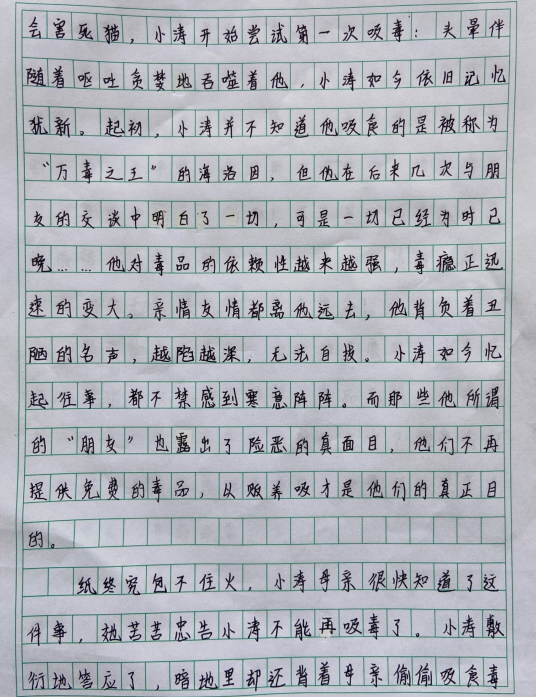 会害死猫，小涛开始尝试第一次吸毒：头晕伴
随着呕吐贪婪地吞噬着他，小涛如今依旧记忆
犹新。起初，小涛并不知道他吸食的是被称为
“万毒之王”的海洛因，但他在后来几次与朋
友的交谈中明白了一切，可是一切已经为时已
晚……他对毒品的依赖性越来越强，毒瘾正迅
速的变大。亲情友情都离他远去，他背负着丑
陋的名声，越陷越深，无法自拔。小涛如今忆
起往事，都不禁感到寒意阵阵。而那些他所谓
的“朋友”也露出了险恶的真面目，他们不再
提供免费的毒品，以贩养吸才是他们的真正目
的。
纸终究包不住火，小涛母亲很快知道了这
件事，她苦苦忠告小涛不能再吸毒了。小涛敷
衍地答应了，暗地里却还背着母亲偷偷吸食毒